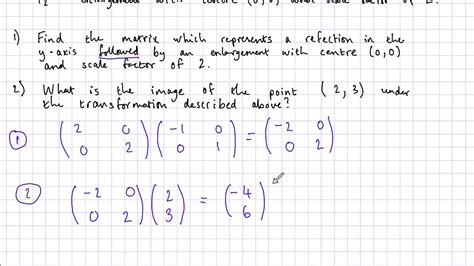 enlargement with centre (0,0) and scale factor of 2.
1) Find the matrix which represents a refection in the
y-axis followed by an enlargement with centre (0,0)
and scale factor of 2.
2) What is the image of the point (2,3) under
the transformation described above?
① (2 0 / 0 2) (-1 0 / 0 1) = (-2 0 / 0 2)
② (-2 0 / 0 2) (2 / 3) = (-4 / 6)